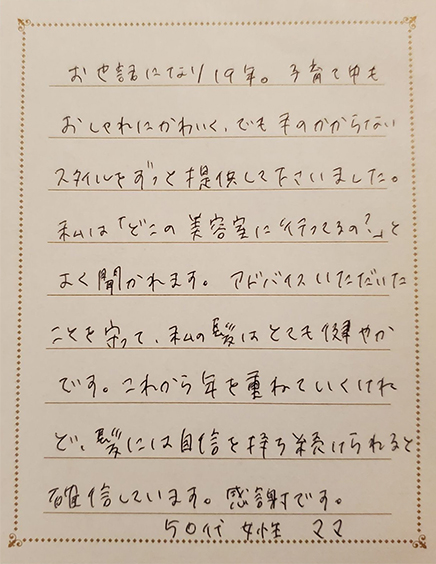 お世話になり19年。子育て中も
おしゃれにかわいく、でも手のかからない
スタイルをずっと提供して下さいました。
私は「どこの美容室に行ってるの?」と
よく聞かれます。アドバイスいただいた
ことを守って、私の髪はとても健やか
です。これから年を重ねていくけれ
ど、髪には自信を持ち続けられると
確信しています。感謝です。
50代 女性 ママ